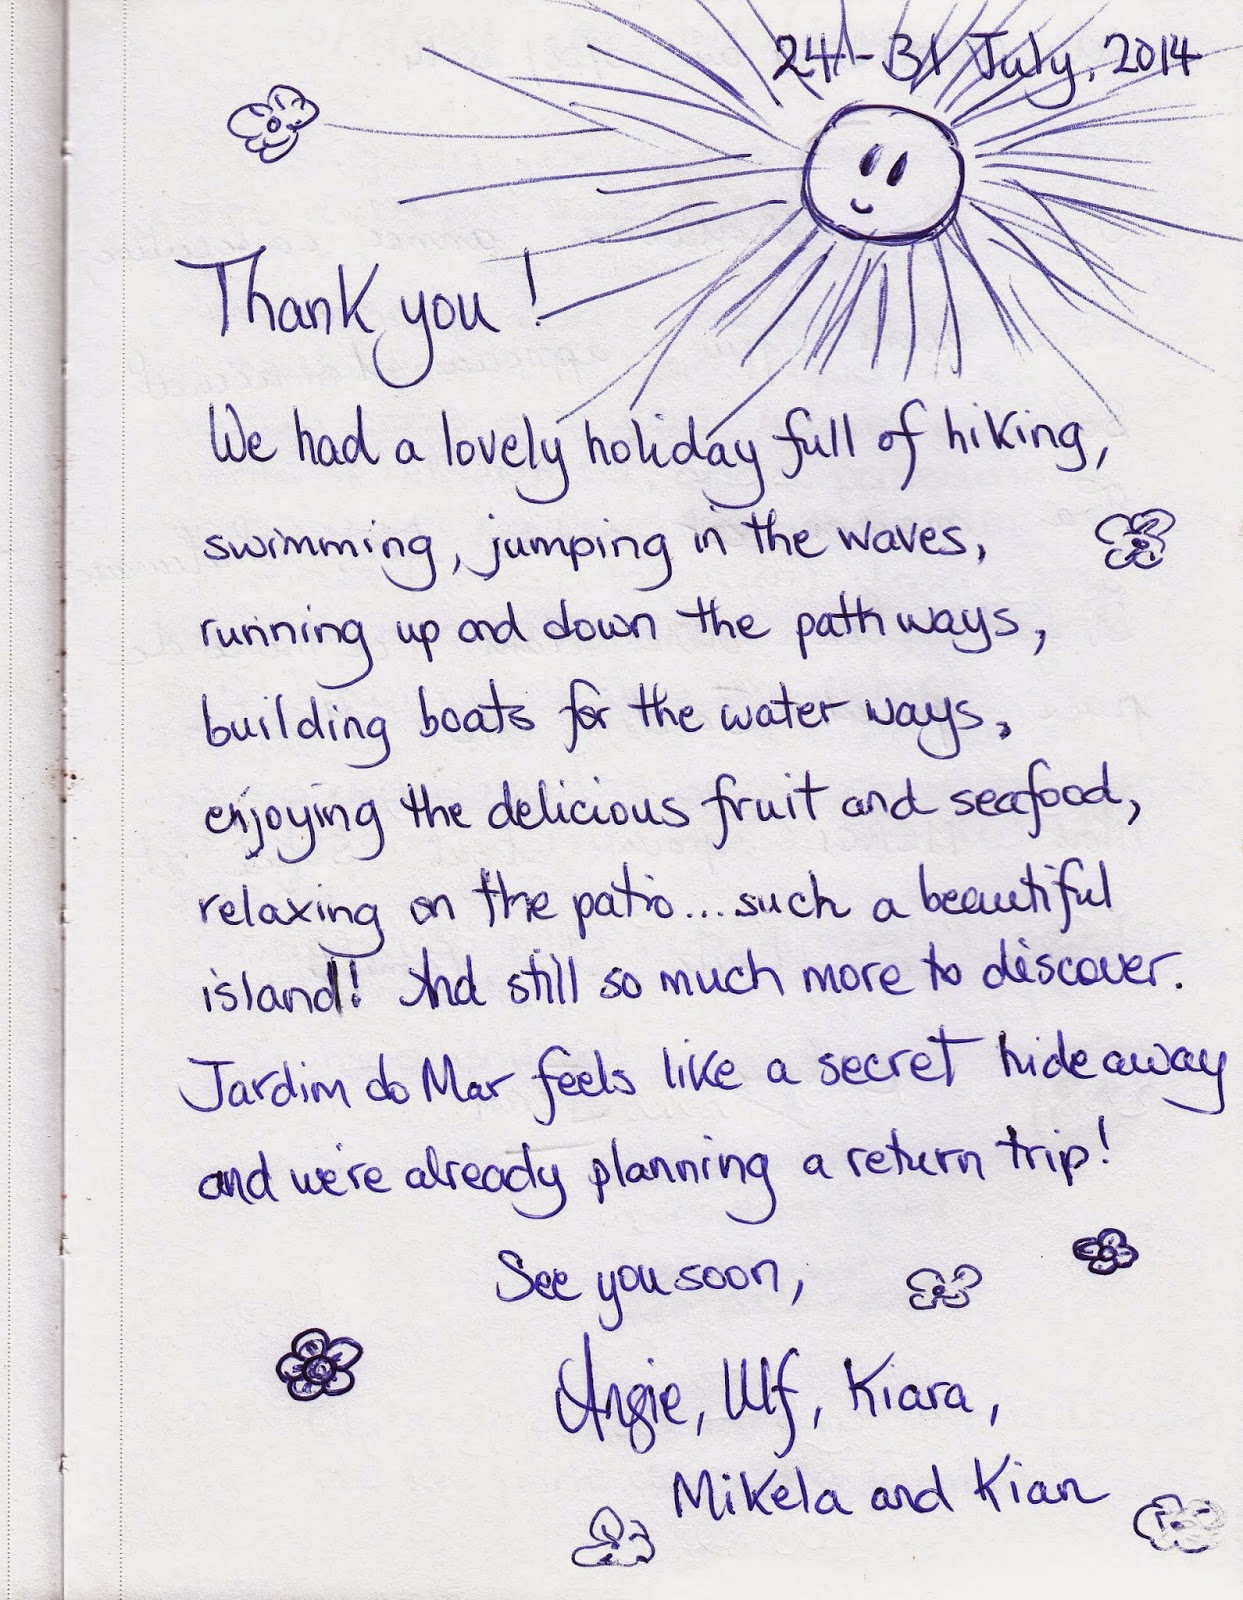 24 - 31 July, 2014
Thank you!
We had a lovely holiday full of hiking,
swimming, jumping in the waves,
running up and down the pathways,
building boats for the water ways,
enjoying the delicious fruit and seafood,
relaxing on the patio... such a beautiful
island! And still so much more to discover.
Jardim do Mar feels like a secret hideaway
and we're already planning a return trip!
See you soon,
Angie, Ulf, Kiara,
Mikela and Kian